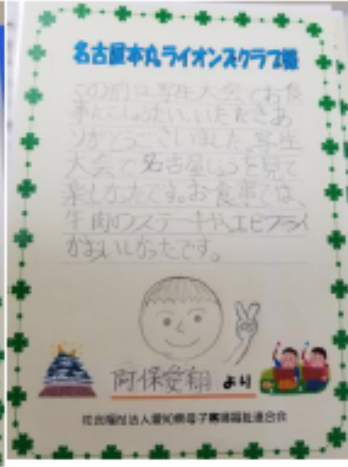 名古屋本丸ライオンズクラブ様
この前は写生大会でお食
事にしょうたいいただきあ
りがとうございました。写生
大会で名古屋じょうを見て
楽しかったです。お食事では、
牛肉のステーキやエビフライ
がおいしかったです。
阿保愛翔 より
社会福祉法人愛知県母子寡婦福祉連合会